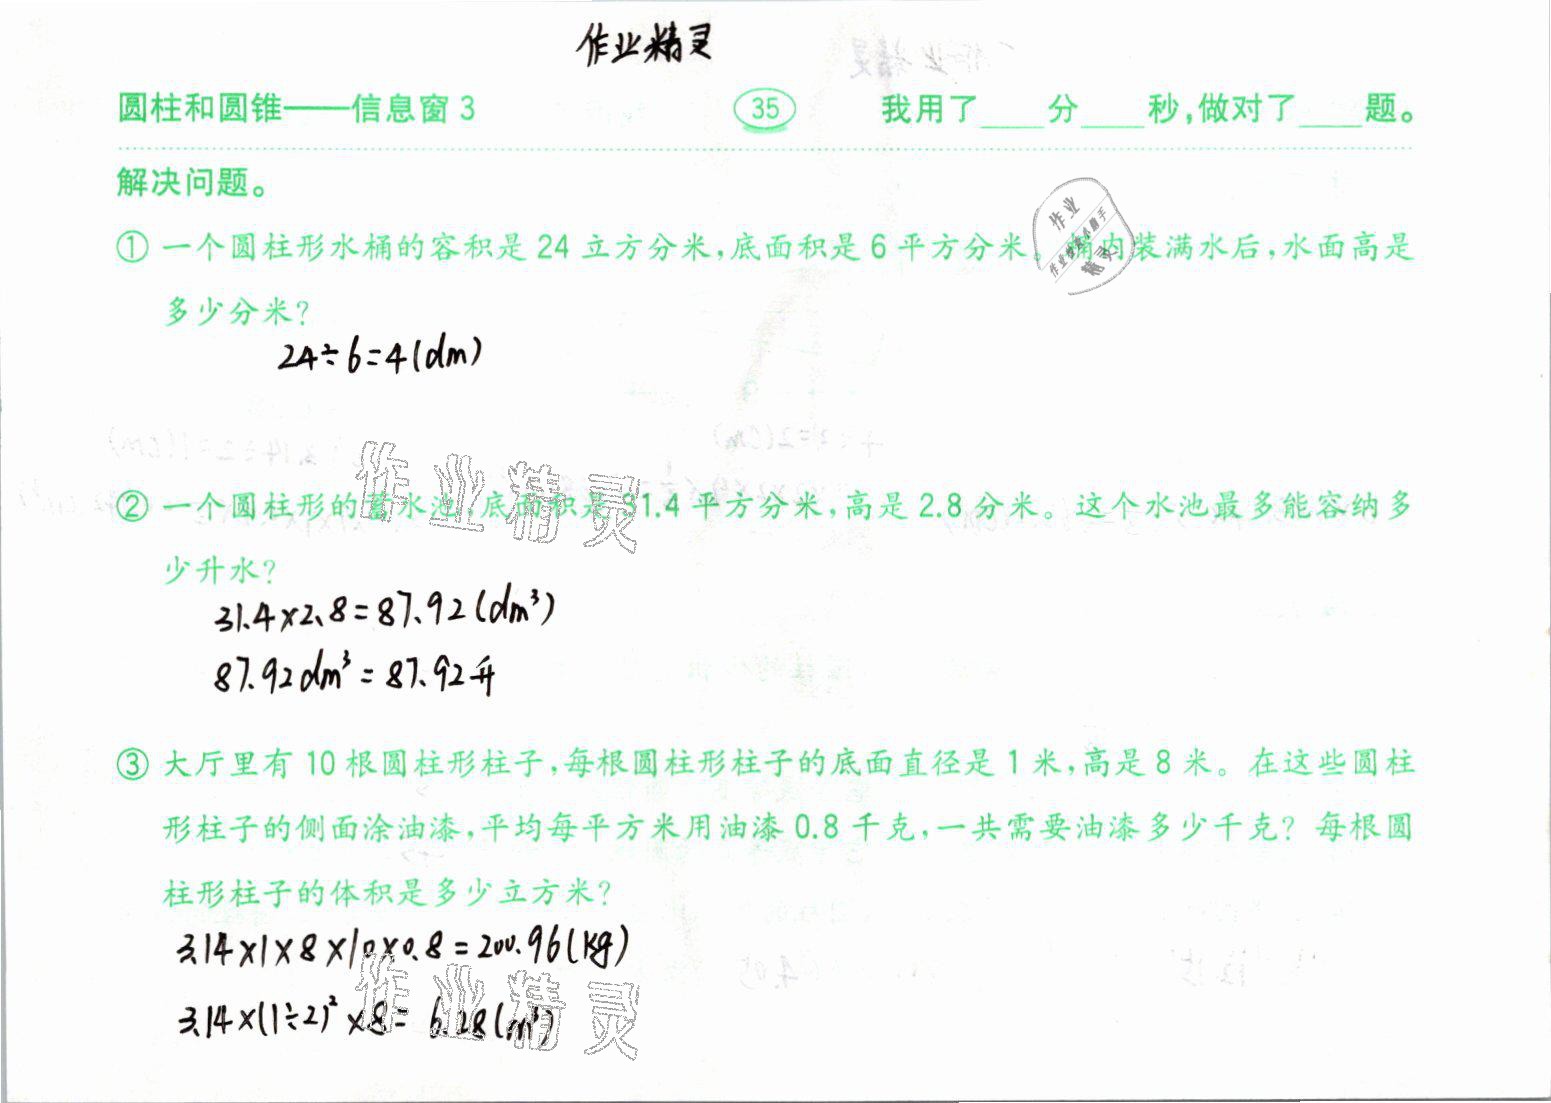 作业精灵
圆柱和圆锥——信息窗3 35 我用了____分____秒,做对了____题。
解决问题。
① 一个圆柱形水桶的容积是24立方分米,底面积是6平方分米。桶内装满水后,水面高是
多少分米?
24÷6=4(dm)
② 一个圆柱形的蓄水池,底面积是31.4平方分米,高是2.8分米。这个水池最多能容纳多
少升水?
31.4×2.8=87.92(dm³)
87.92dm³=87.92升
③ 大厅里有10根圆柱形柱子,每根圆柱形柱子的底面直径是1米,高是8米。在这些圆柱
形柱子的侧面涂油漆,平均每平方米用油漆0.8千克,一共需要油漆多少千克? 每根圆
柱形柱子的体积是多少立方米?
3.14×1×8×10×0.8=200.96(kg)
3.14×(1÷2)²×8=6.28(m³)
作业精灵
作业精灵
作业
精灵